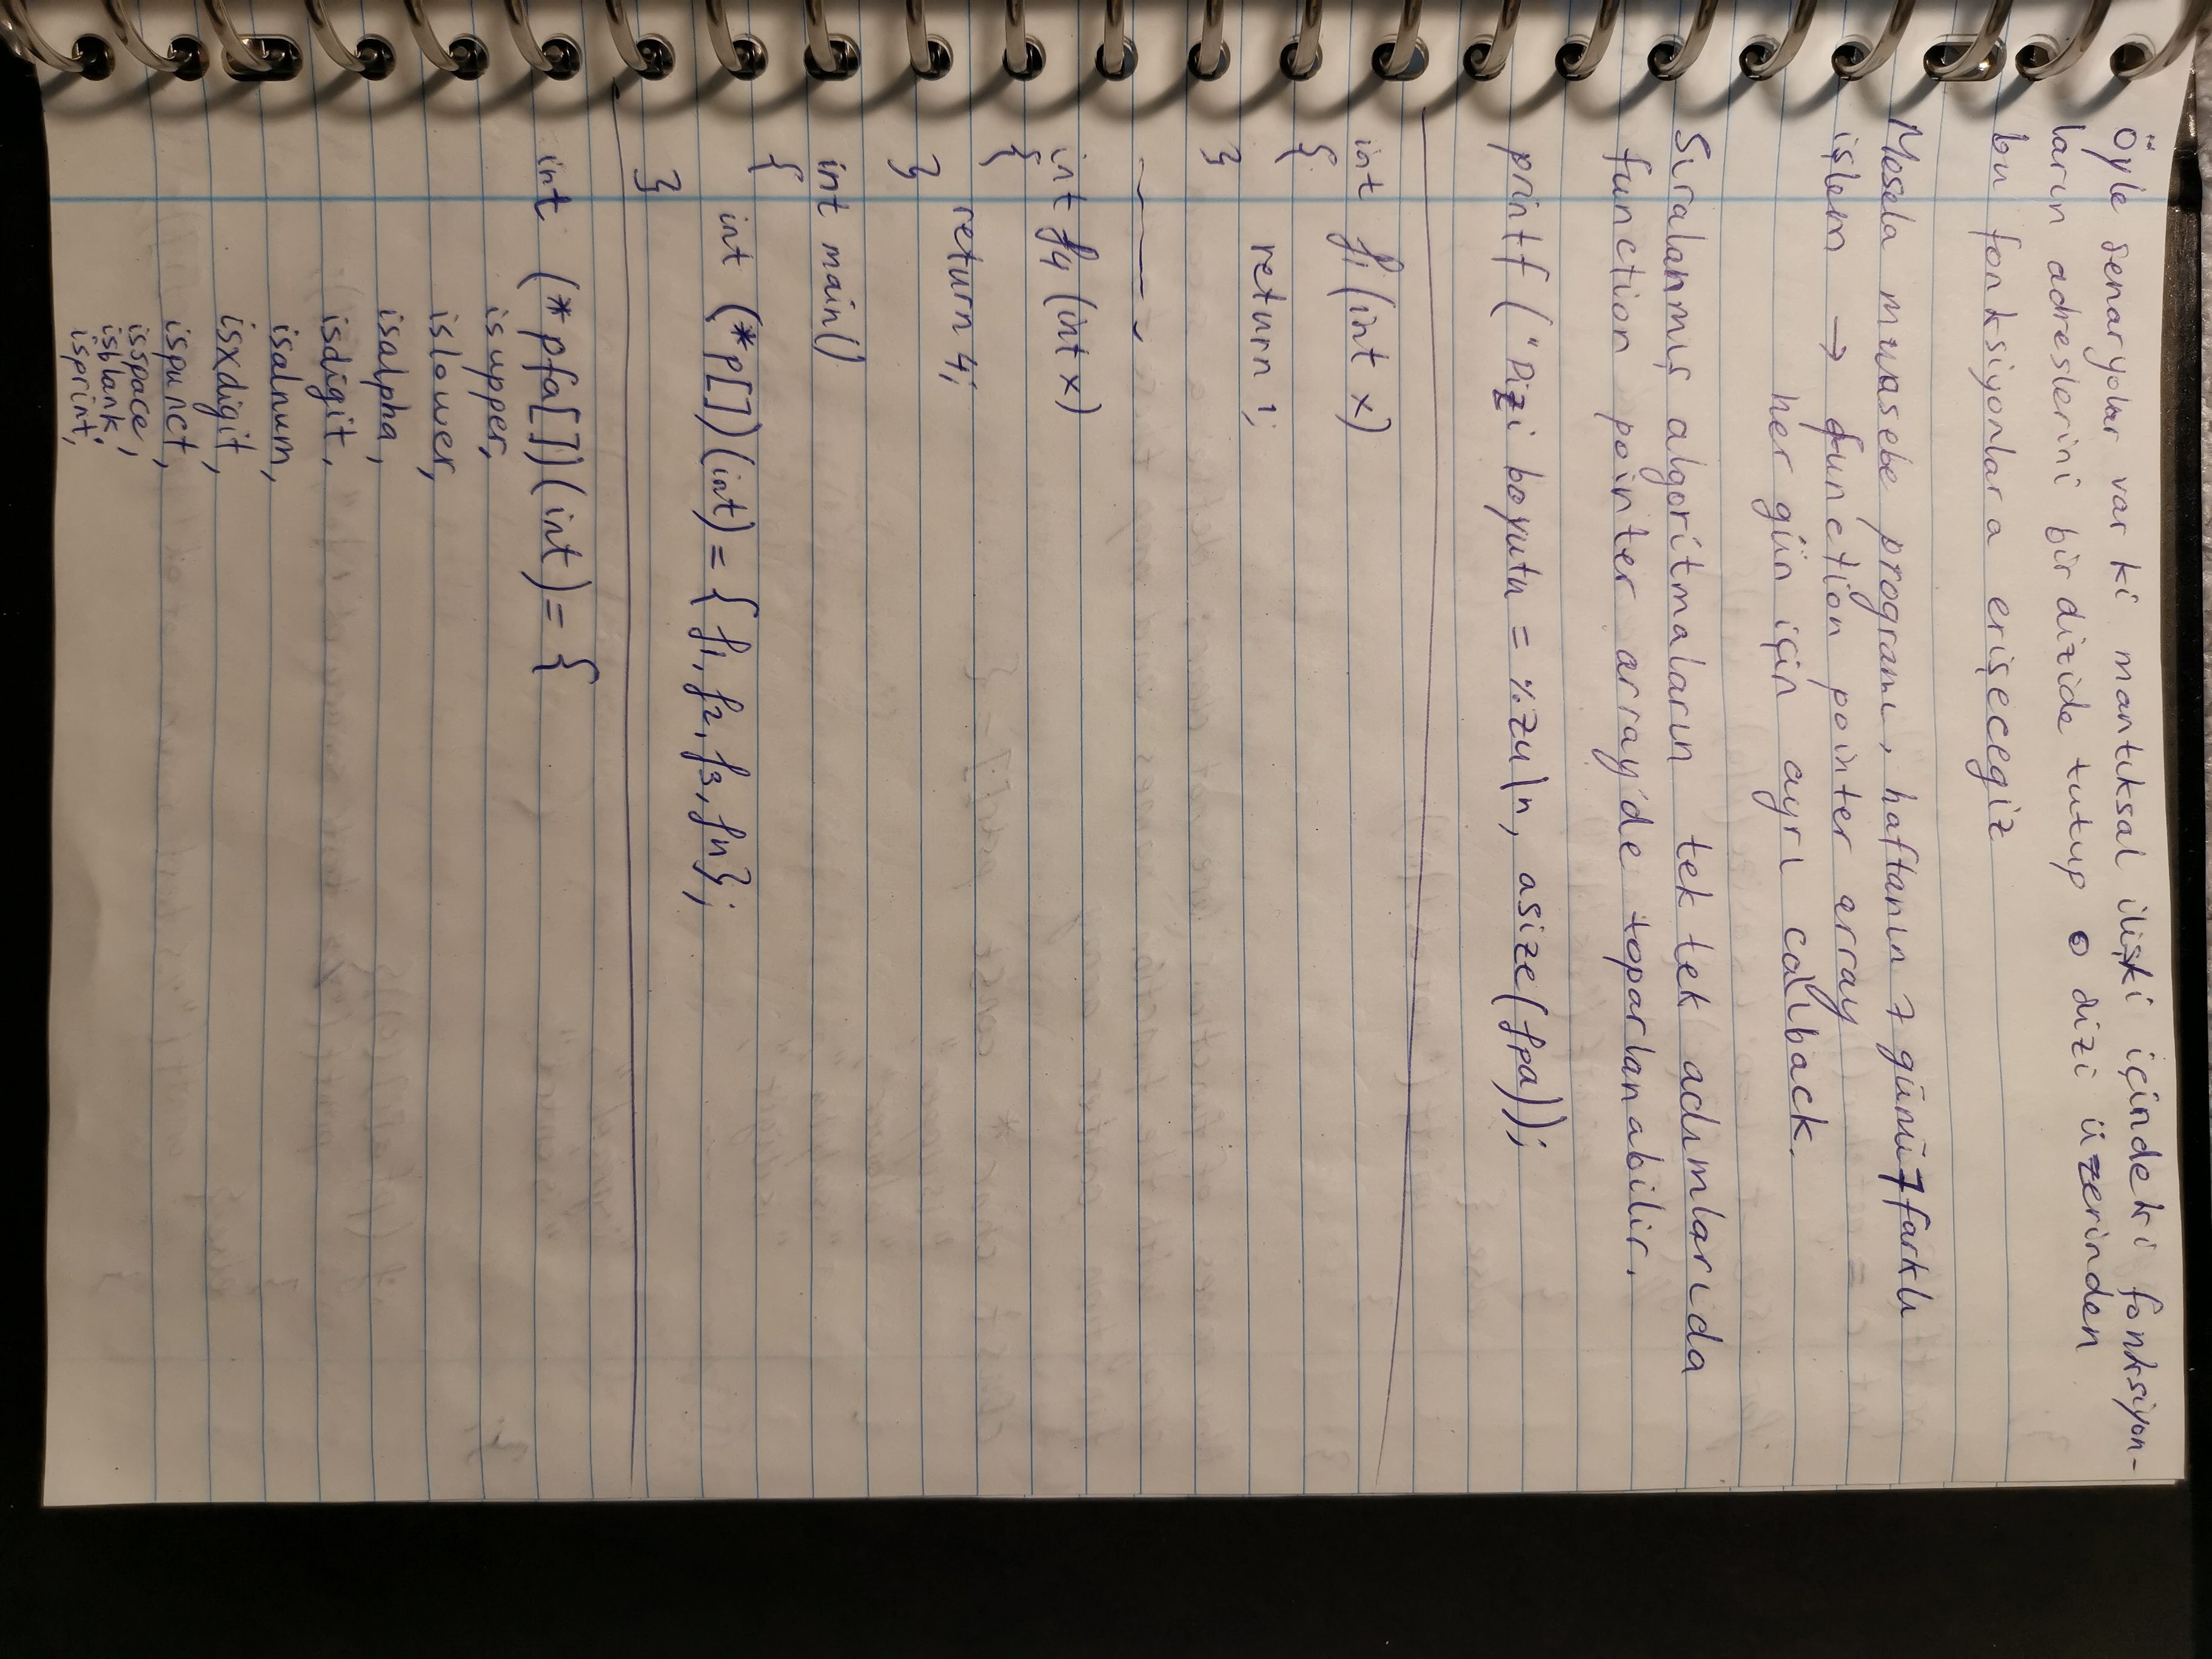 Öyle senaryolar var ki mantıksal ilişki içindeki fonksiyon-
ların adreslerini bir dizide tutup o dizi üzerinden
bu fonksiyonlara erişecegiz
Mesela muasebe programı, haftanın 7 günü 7 farklı
işlem → function pointer array
her gün için ayrı callback.
Sıralanmış algoritmaların tek tek adımlarıda
function pointer array'de toparlanabilir.
printf ("Dizi boyutu = %zu\n, asize(fpa));
int f1 (int x)
{
return 1;
}
int f4 (int x)
{
return 4;
}
int main()
{
int (*p[])(int) = { f1, f2, f3, fn};
}
int (*pfa[])(int) = {
isupper,
islower,
isalpha,
isdigit,
isalnum,
isxdigit,
ispunct,
isspace,
isblank,
isprint,